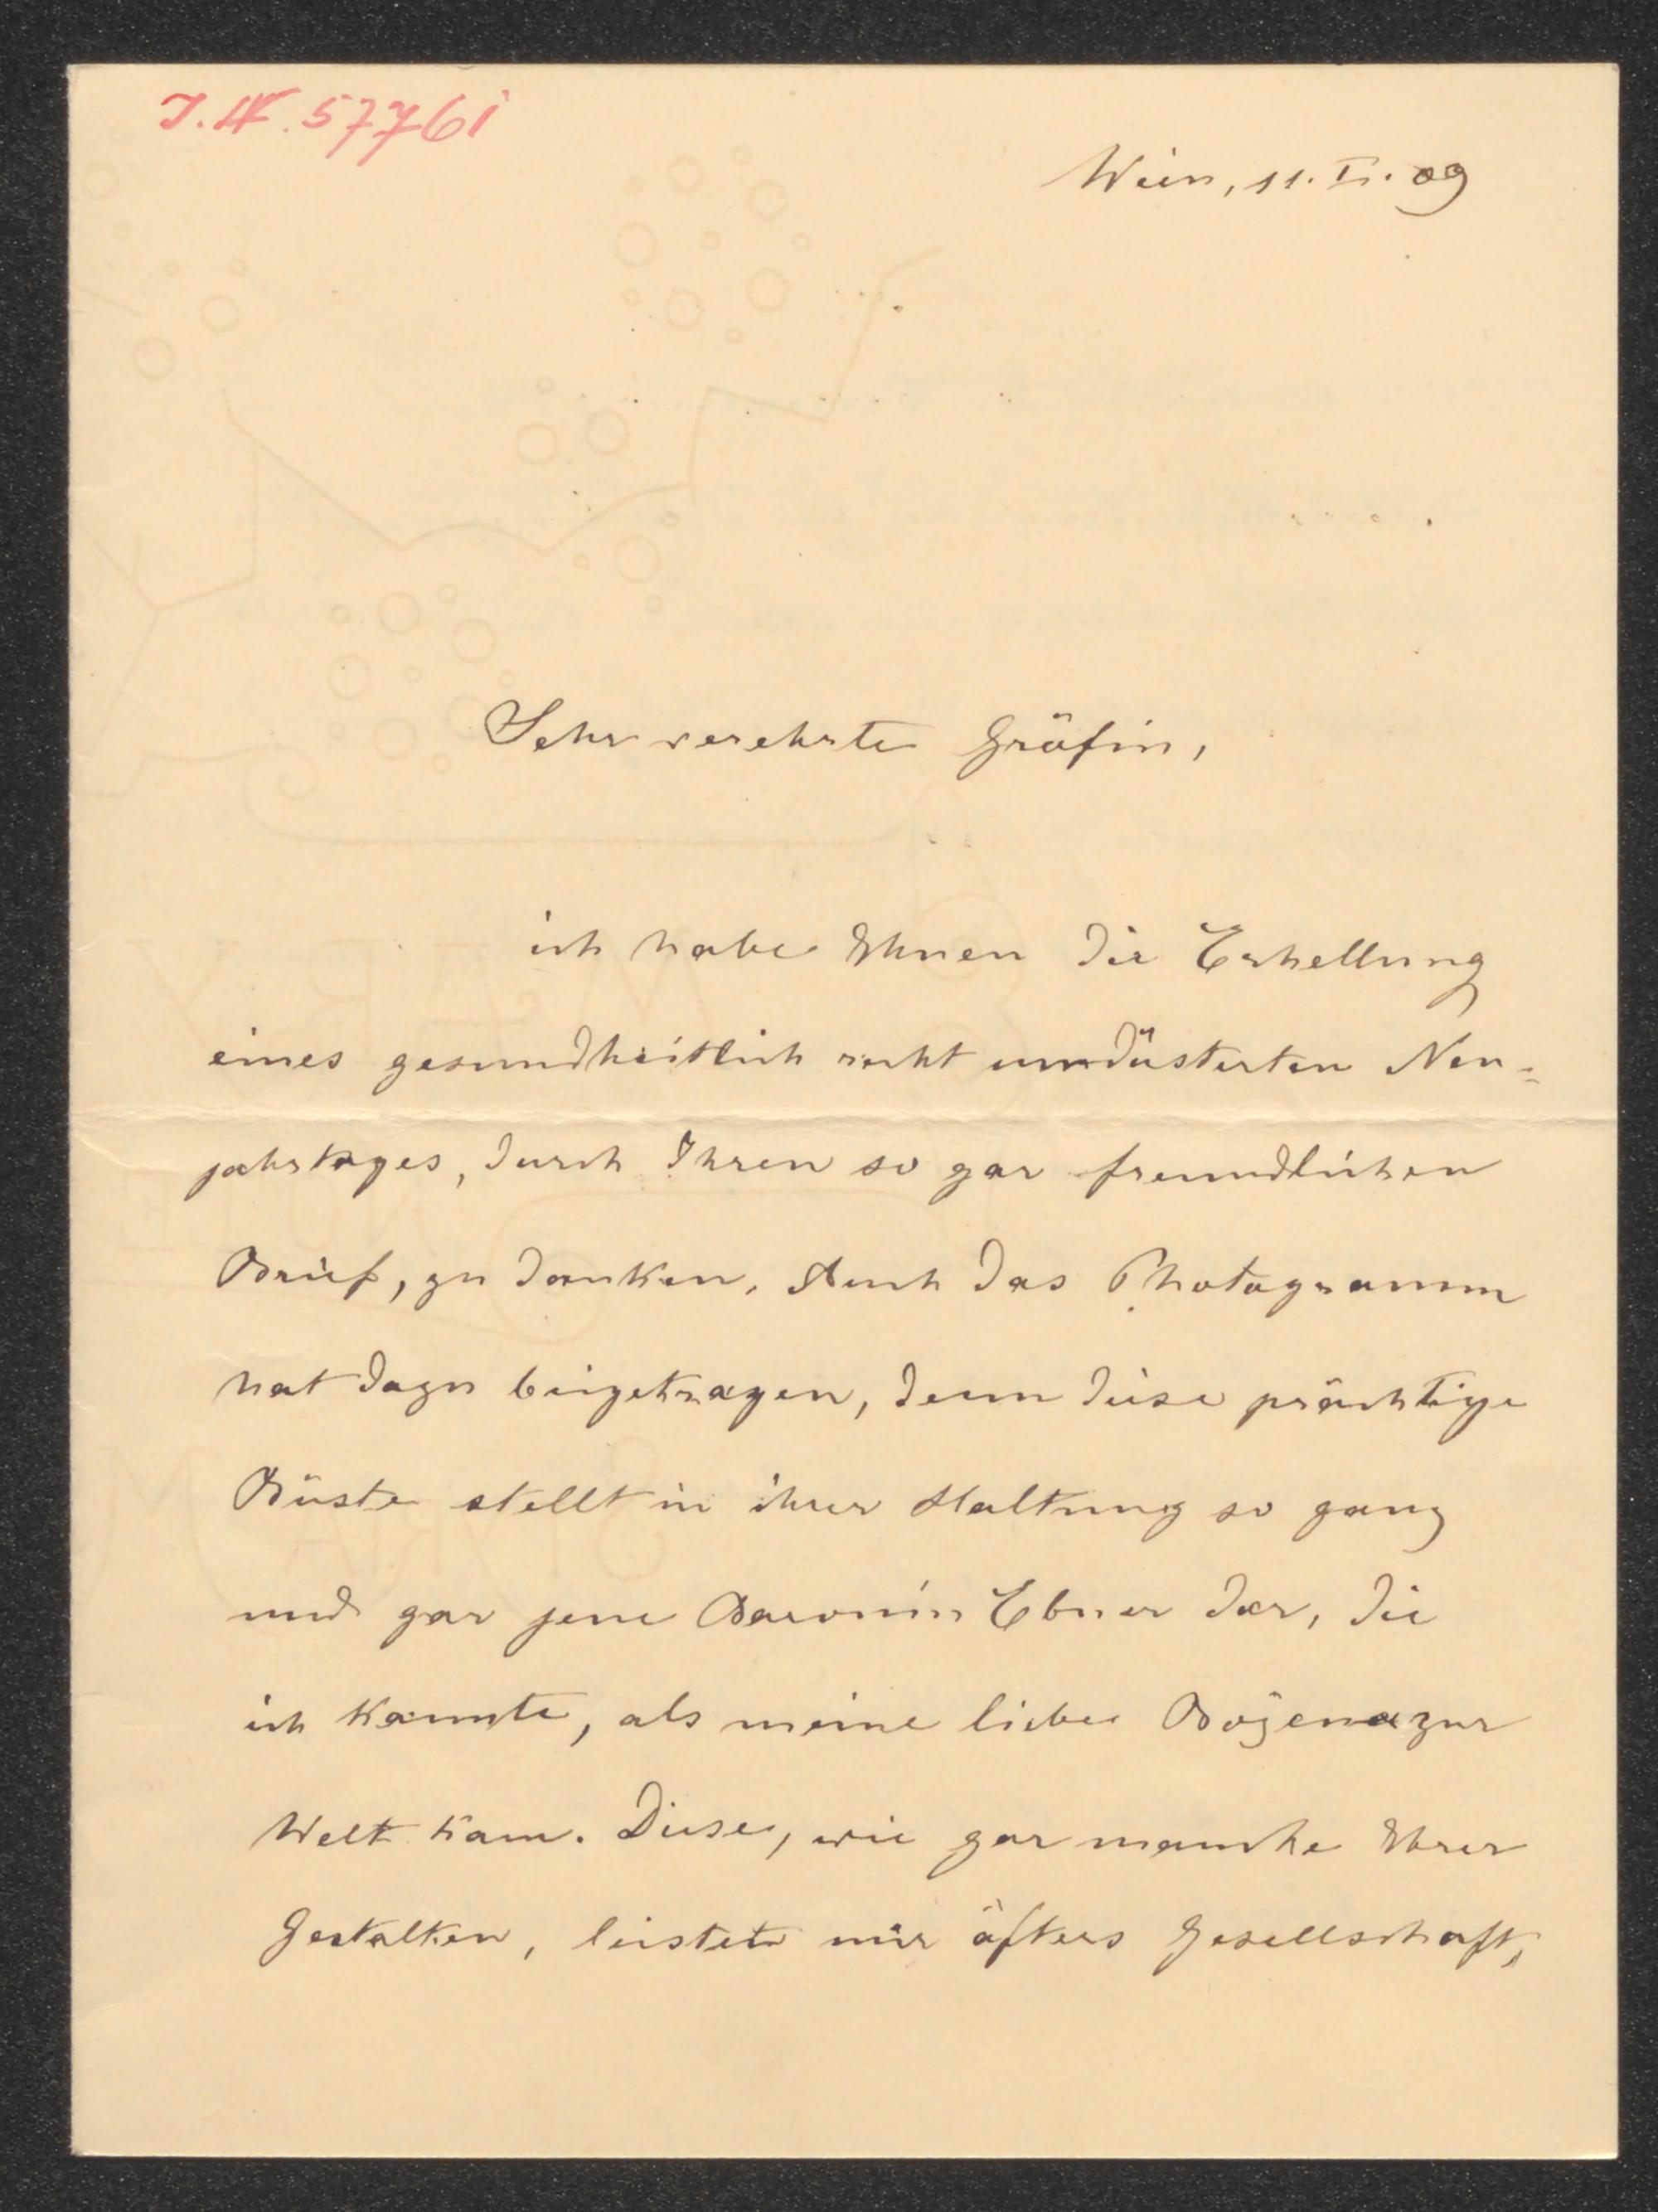 I.N. 57761
Wien, 11. I. 09
Sehr verehrte Gräfin,
ich habe Ihnen die Erhellung
eines gesundheitlich recht umdüsterten Neu=
jahrstages, durch Ihren so gar freundlichen
Brief, zu danken. Auch das Photogramm
hat dazu beigetragen, denn diese prächtige
Büste stellt in ihrer Haltung so ganz
und gar jene Baronin Ebner dar, die
ich kannte, als meine liebe Božena zur
Welt kam. Diese, wie gar manche Ihrer
Gestalten, leistet mir öfters Gesellschaft,